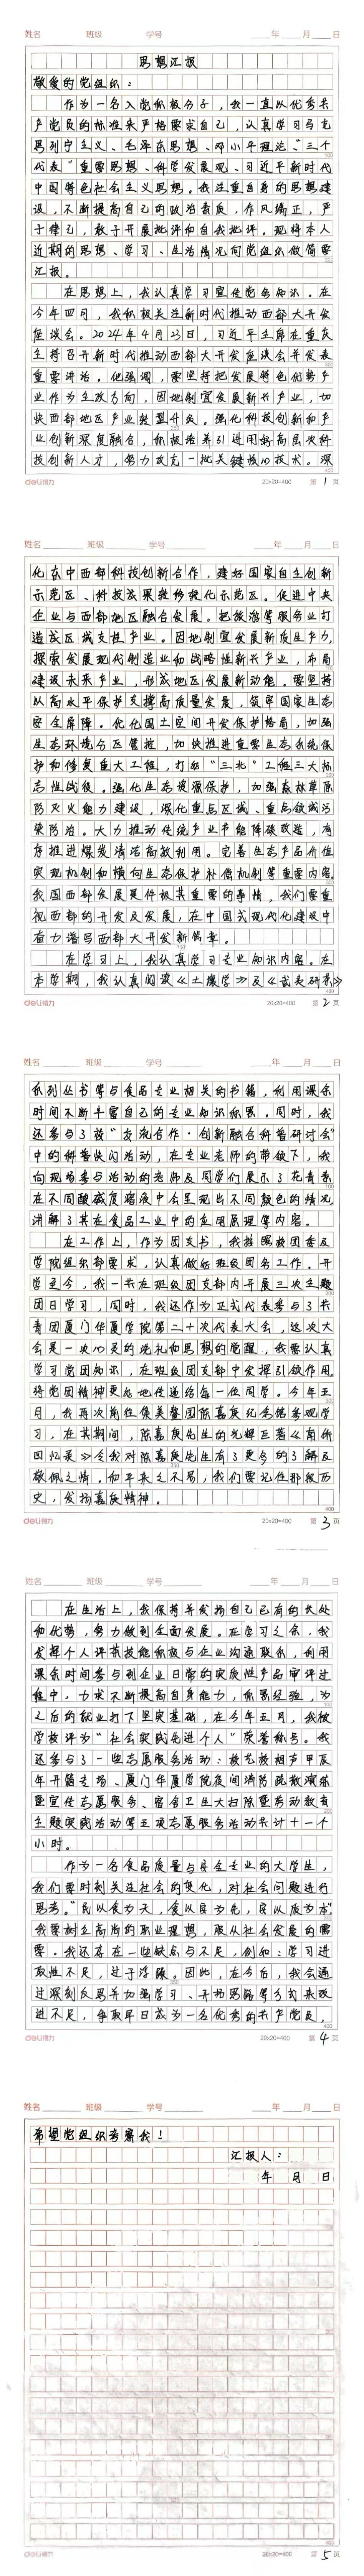 姓名 班级 学号 年 月 日
思想汇报
敬爱的党组织：
作为一名入党积极分子，我一直以优秀共
产党员的标准来严格要求自己，认真学习马克
思列宁主义、毛泽东思想、邓小平理论、“三个
代表”重要思想、科学发展观、习近平新时代
中国特色社会主义思想。我注重自身的思想建
设，不断提高自己的政治素质，作风端正，严
于律己，敢于开展批评和自我批评。现将本人
近期的思想、学习、生活情况向党组织做简要
汇报。
在思想上，我认真学习宣传党务知识。在
今年四月，我积极关注新时代推动西部大开发
座谈会。2024年4月23日，习近平主席在重庆
主持召开新时代推动西部大开发座谈会并发表
重要讲话。他强调，要坚持把发展特色优势产
业作为主攻方向，因地制宜发展新兴产业，加
快西部地区产业转型升级。强化科技创新和产
业创新深度融合，积极培养引进用好高层次科
技创新人才，努力攻克一批关键核心技术。深
deli得力 20x20=400 第 1 页
姓名 班级 学号 年 月 日
化东中西部科技创新合作，建好国家自主创新
示范区、科技成果转移转化示范区。促进中央
企业与西部地区融合发展。把旅游等服务业打
造成区域支柱产业。因地制宜发展新质生产力，
探索发展现代制造业和战略性新兴产业，布局
建设未来产业，形成地区发展新动能。要坚持
以高水平保护支撑高质量发展，筑牢国家生态
安全屏障。优化国土空间开发保护格局，加强
生态环境分区管控，加快推进重要生态系统保
护和修复重大工程，打好“三北”工程三大标
志性战役。强化生态资源保护，加强森林草原
防灭火能力建设，深化重点区域、重点领域污
染防治。大力推动传统产业节能降碳改造，有
序推进煤炭清洁高效利用。完善生态产品价值
实现机制和横向生态保护补偿机制等重要内容。
我国西部发展是件极其重要的事情，我们要重
视西部的开发及发展，在中国式现代化建设中
奋力谱写西部大开发新篇章。
在学习上，我认真学习专业知识内容。在
本学期，我认真阅读《土壤学》及《蔬菜研究》
deli得力 20x20=400 第 2 页
姓名 班级 学号 年 月 日
系列丛书等与食品专业相关的书籍，利用课余
时间不断丰富自己的专业知识积累。同时，我
还参与了校“交流合作·创新融合科普研讨会”
中的科普快闪活动，在专业老师的带领下，我
向现场参与活动的老师及同学们展示了花青素
在不同酸碱度溶液中会呈现出不同颜色的情况，
讲解了其在食品工业中的应用原理等内容。
在工作上，作为团支书，我按照校团委及
学院组织部要求，认真做好班级团务工作。开
学至今，我一共在班级团支部内开展三次主题
团日学习，同时，我还作为正式代表参与了共
青团厦门华厦学院第二十次代表大会，这次大
会是一次心灵的洗礼和思想的觉醒，我要认真
学习党团知识，在班级团支部中发挥引领作用，
将党团精神更好地传递给每一位同学。今年五
月，我再次前往集美鳌园陈嘉庚纪念馆参观学
习，在其期间，陈嘉庚先生的光辉巨著《南侨
回忆录》令我对陈嘉庚先生有了更多的了解及
敬佩之情。和平来之不易，我们要记住那段历
史，发扬嘉庚精神。
deli得力 20x20=400 第 3 页
姓名 班级 学号 年 月 日
在生活上，我保持并发扬自己已有的长处
和优势，努力做到全面发展。在学习之余，我
发挥个人评茶技能积极与企业沟通联系，利用
课余时间参与到企业日常的实质性产品审评过
程中，力求不断提高自身能力，积累经验，为
之后的就业打下坚实基础，在今年五月，我被
学校评为“社会实践先进个人”荣誉称号。我
还参与了一些志愿服务活动：校无校相声甲辰
年开箱专场、厦门华厦学院夜间消防疏散演练
暨宣传志愿服务、宿舍卫生大扫除暨劳动教育
主题实践活动等五项志愿服务活动共计十一个
小时。
作为一名食品质量与安全专业的大学生，
我们要时刻关注社会的变化，对社会问题进行
思考。“民以食为天，食以安为先，安以质为本”
我要树立高尚的职业理想，服从社会发展的需
要。我还存在一些缺点与不足，例如：学习进
取性不足，过于浮躁。因此，在今后，我会通
过深刻反思并加强学习、开拓思路等方式来改
进不足，争取早日成为一名优秀的共产党员，
deli得力 20x20=400 第 4 页
姓名 班级 学号 年 月 日
希望党组织考察我！
汇报人：
年 月 日
deli得力 20x20=400 第 5 页